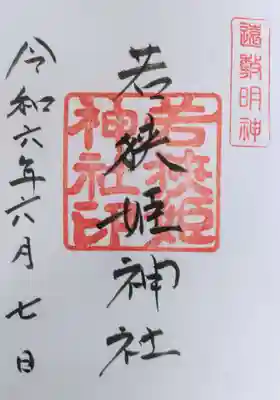 遠敷明神
若狹姫神社
若狹姫
神社印
令和六年六月七日